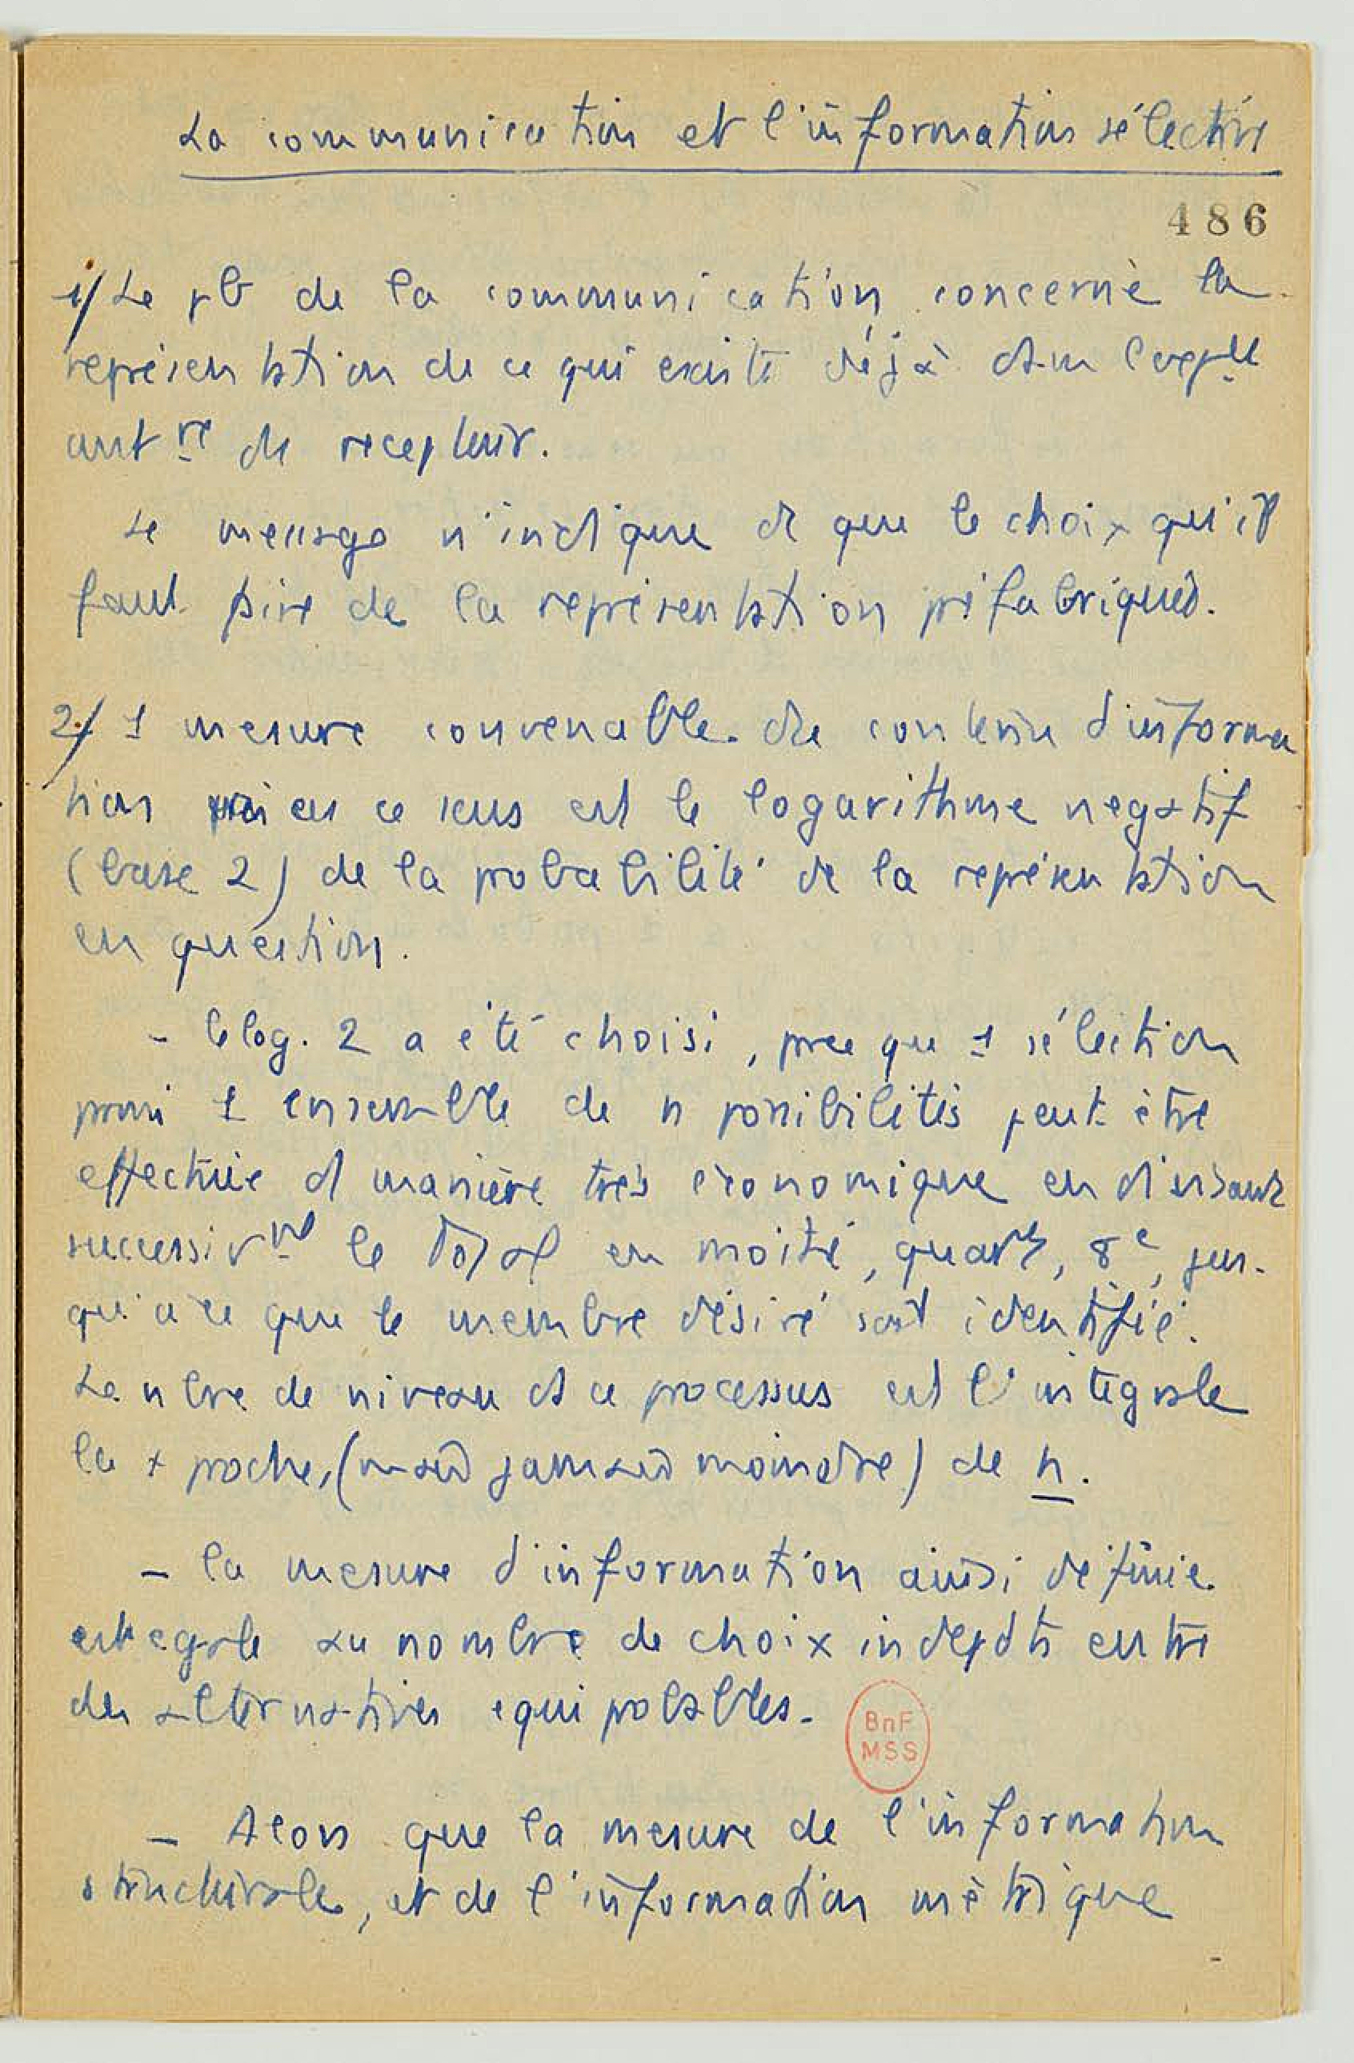 La communication et l'information sélective
486
1/ Le pb de la communication concerne la
représentation de ce qui existe déjà
de recepteur.
Le message n'indique que le choix qu'il
faut de la représentation préfabriquée.
2/ 1 mesure convenable du contenu d'informa
tion en ce sens est le logarithme negatif
(base 2) de la probabilité de la représentation
en question.
- le log. 2 a été choisi, pce que 1 sélection
prmi 1 ensemble de n possibilités peut être
effectuée d manière très économique en divisant
successivnt le total en moitié, quarts, 8e, jus-
qu'à ce que le membre désiré soit identifié.
Le nbre de niveau d ce processus est l'integrale
la + proche, (mais jamais moindre) de n.
- la mesure d'information ainsi définie
est egale au nombre de choix indepdts entre
des alternatives equiprobables.
BnF
MSS
- Alors que la mesure de l'information
structurale, et de l'information métrique